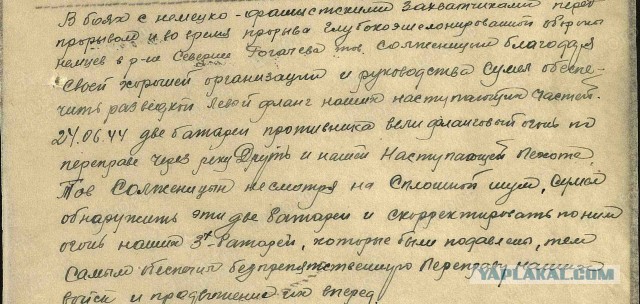 В боях с немецко-фашистскими захватчиками перед
прорывом и во время прорыва глубокоэшелонированной обороны
немцев в р-не Севернее Рогачева тов. Солженицин благодаря
своей хорошей организации и руководства сумел обеспе-
чить разведкой левой фланг наших наступающих частей.
24.06.44 две батареи противника вели фланговый огонь по
переправе через реку Друть и нашей наступающей пехоте.
Тов Солженицын несмотря на сплошной шум, сумел
обнаружить эти две батареи и скорректировать по ним
огонь наших 3х батарей, которые были подавлены, тем
самым обеспечил безпрепятственную переправу наших
войск и продвижение их вперед.
YAPLAKAL.COM